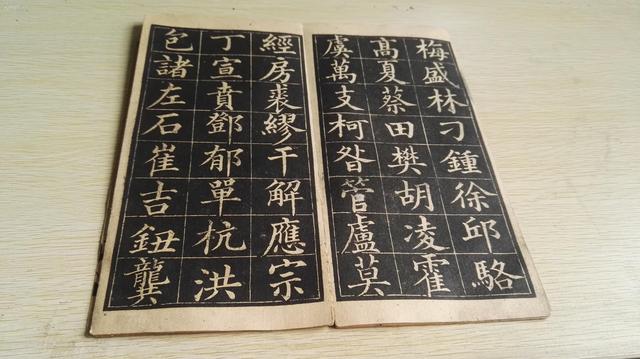 梅盛林刁鍾徐邱駱
高夏蔡田樊胡凌霍
虞萬支柯昝管盧莫
經房裘繆干解應宗
丁宣賁鄧郁單杭洪
包諸左石崔吉鈕龔